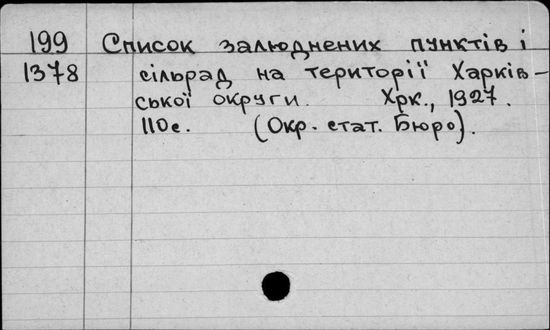 199 Список залюднених пунктів і
1378 сільрад на території Харків-
ської округи. Хрк., 1927.
110с. (Окр. стат. Бюро).